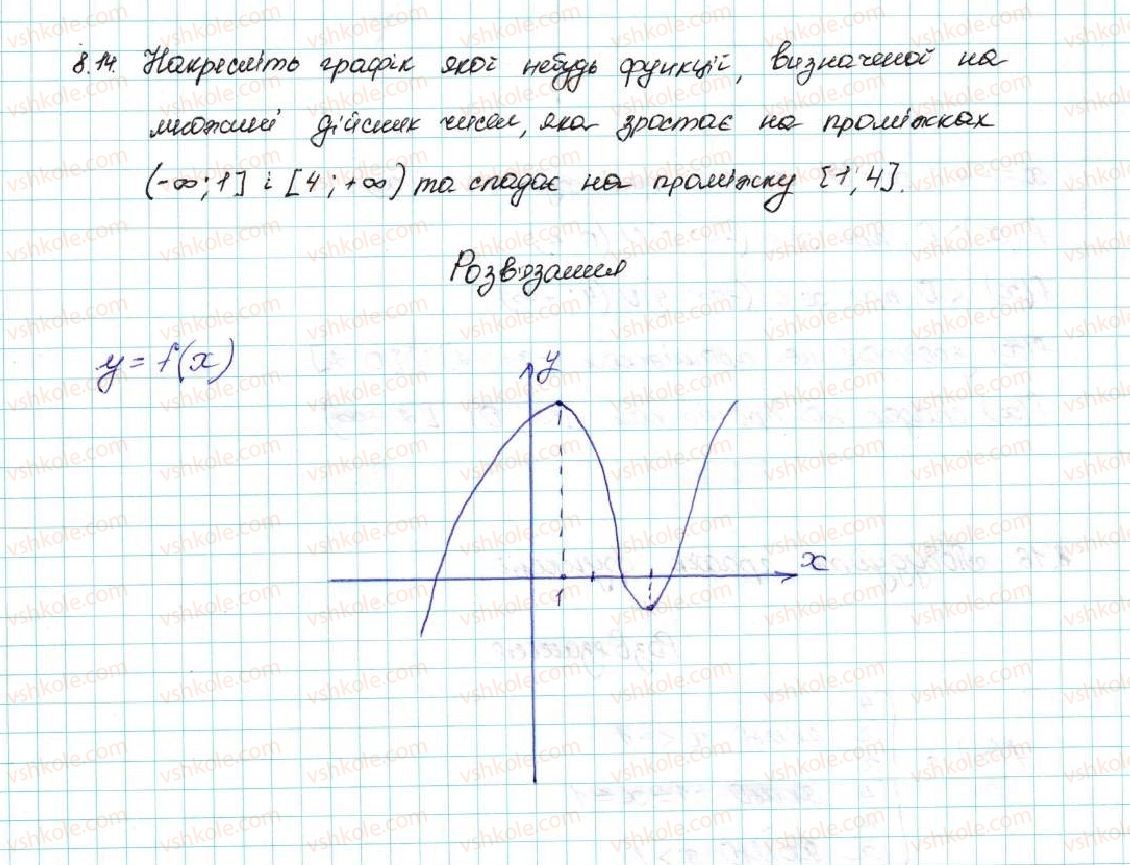 8.14. Накресліть графік якої небудь функції, визначеної на
множині дійсних чисел, яка зростає на проміжках
(-∞; 1] і [4; +∞) та спадає на проміжку [1; 4].
Розв'язання
y = f(x)
y
x
1
vshkole.com